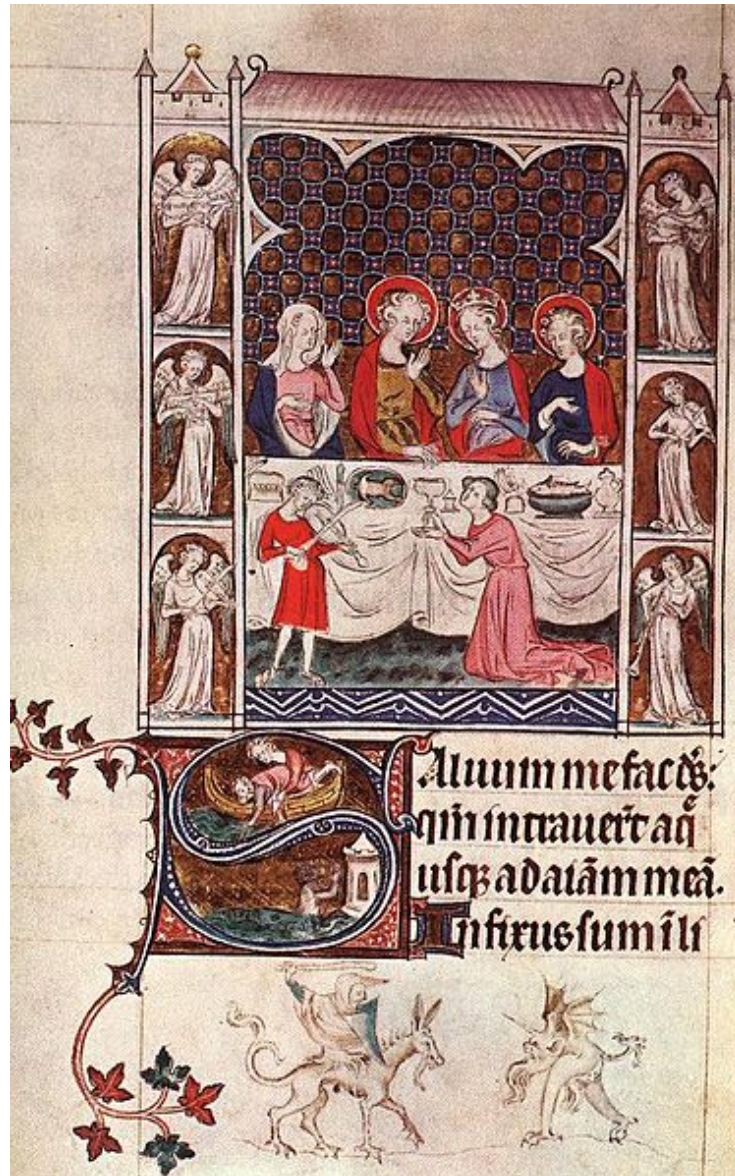 Saluum me fac ds̄:
qm̄ intrauer̄t aq̄
usqꝫ ad aīam meā.
Infixus sum ī li